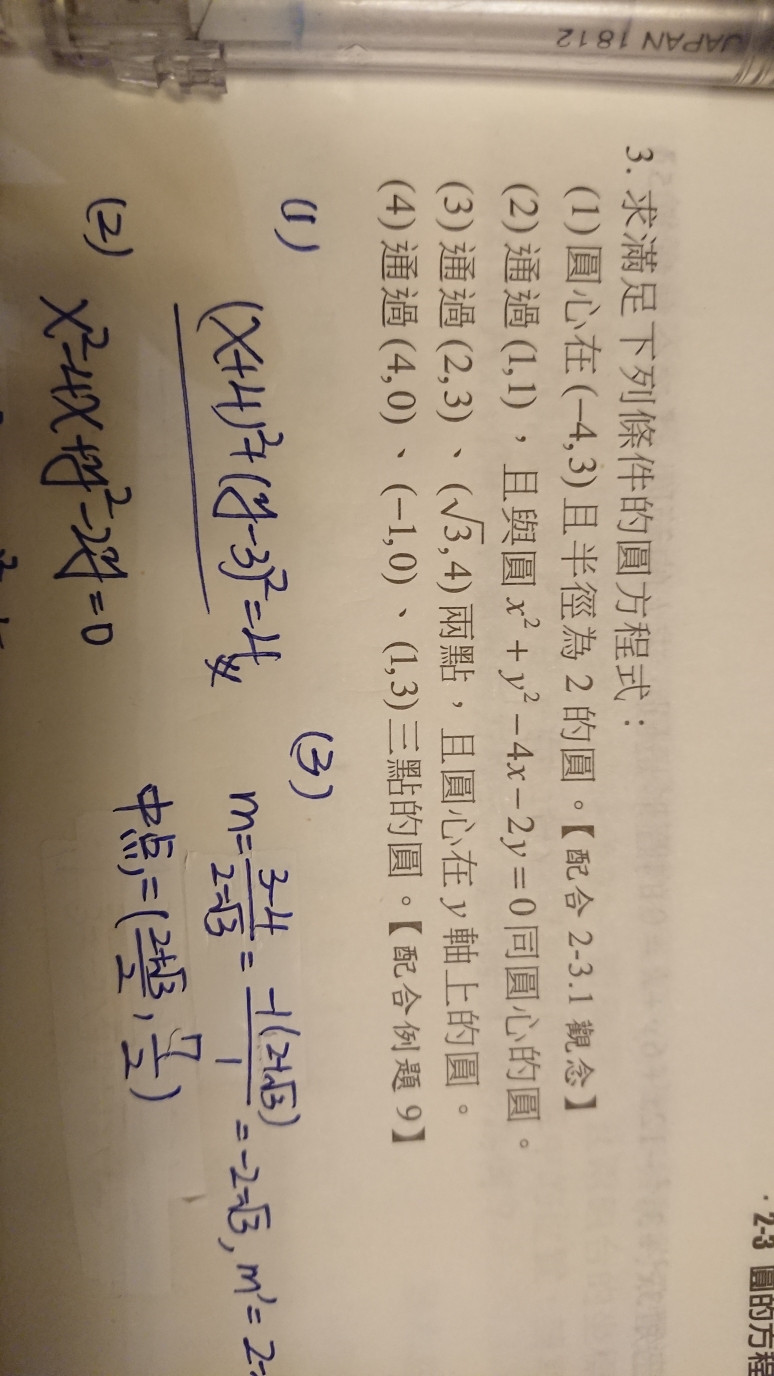 JAPAN 1812
2-3 圓的方程
3. 求滿足下列條件的圓方程式：
(1) 圓心在 (−4,3) 且半徑為 2 的圓。【配合 2-3.1 觀念】
(2) 通過 (1,1)，且與圓 x² + y² − 4x − 2y = 0 同圓心的圓。
(3) 通過 (2,3)、(√3,4) 兩點，且圓心在 y 軸上的圓。
(4) 通過 (4,0)、(−1,0)、(1,3) 三點的圓。【配合例題 9】
(1)
(x+4)²+(y-3)²=4
(2)
x²-4x+y²-2y=0
(3)
m=\frac{3-4}{2-√3}=\frac{-1(2+√3)}{1}=-2-√3, m'=2-
中点=(\frac{2+√3}{2}, \frac{7}{2})